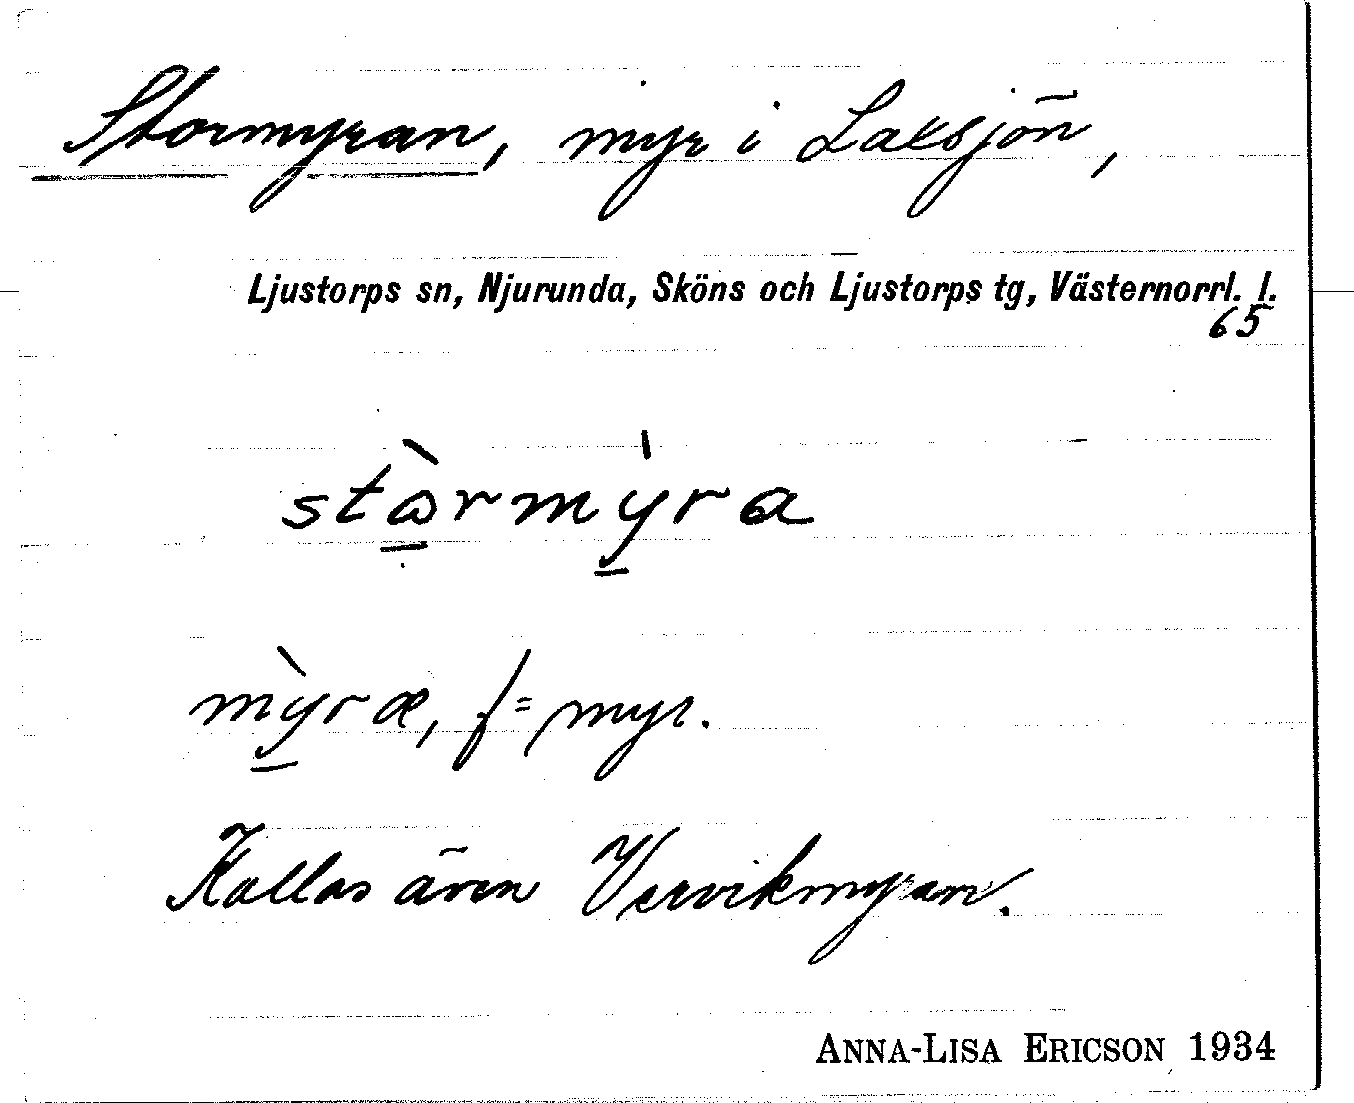 Stormyran, myr i Laxsjön,
Ljustorps sn, Njurunda, Sköns och Ljustorps tg, Västernorrl. l.
65
stὼ̱rmy̱̍ra
mỳ̱ræ, f = myr.
Kallas även Vervikmyran.
ANNA-LISA ERICSON 1934